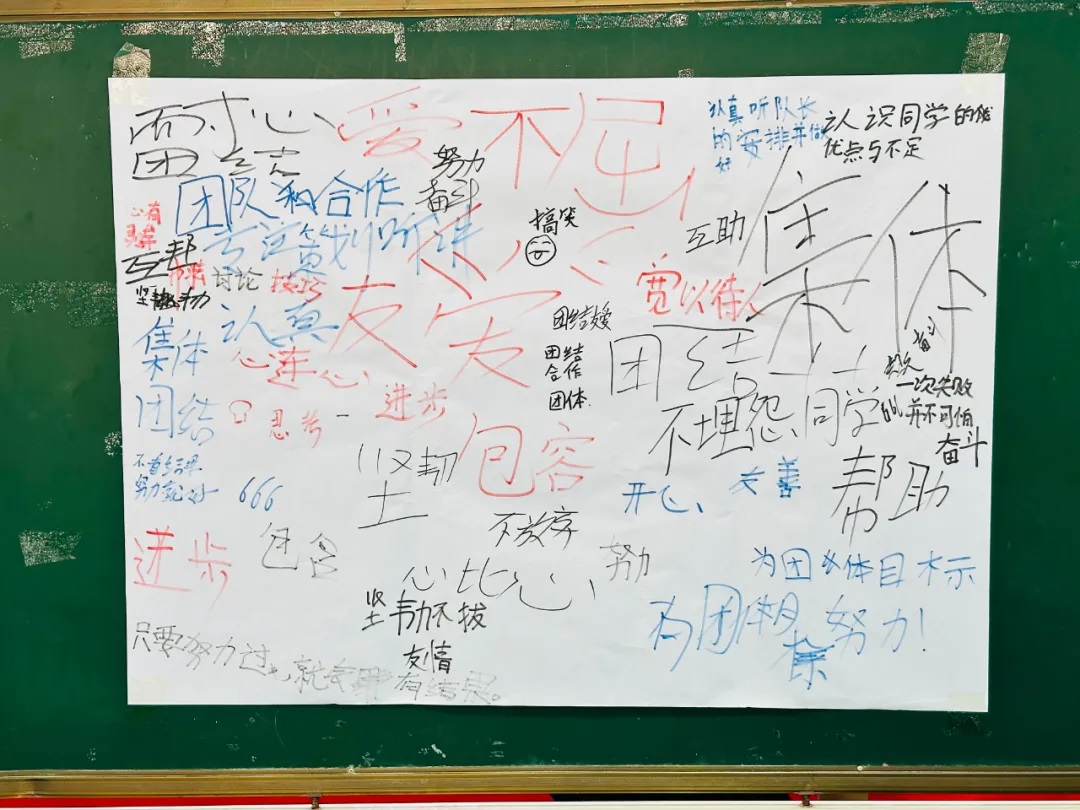 耐心
爱
不屈
认真听队长
的安排并做
好
认识同学的优
优点与不足
团结
努力
奋斗
团队和合作
心有
灵犀
搞笑
互助
集体
互帮
讨论
宽以待人
坚韧
友
团结友爱
认真
集体
心连心
团结
合作
团体
团结
奋斗
一次失败
并不可怕
进步
团结
思考
不埋怨同学
奋斗
包容
坚
帮
不看结果
努力就好
666
开心
友善
帮助
不放弃
进步
包容
努力
心比心
为团体目标
坚韧不拔
为团体目标努力!
友情
只要努力过,就会有结果。